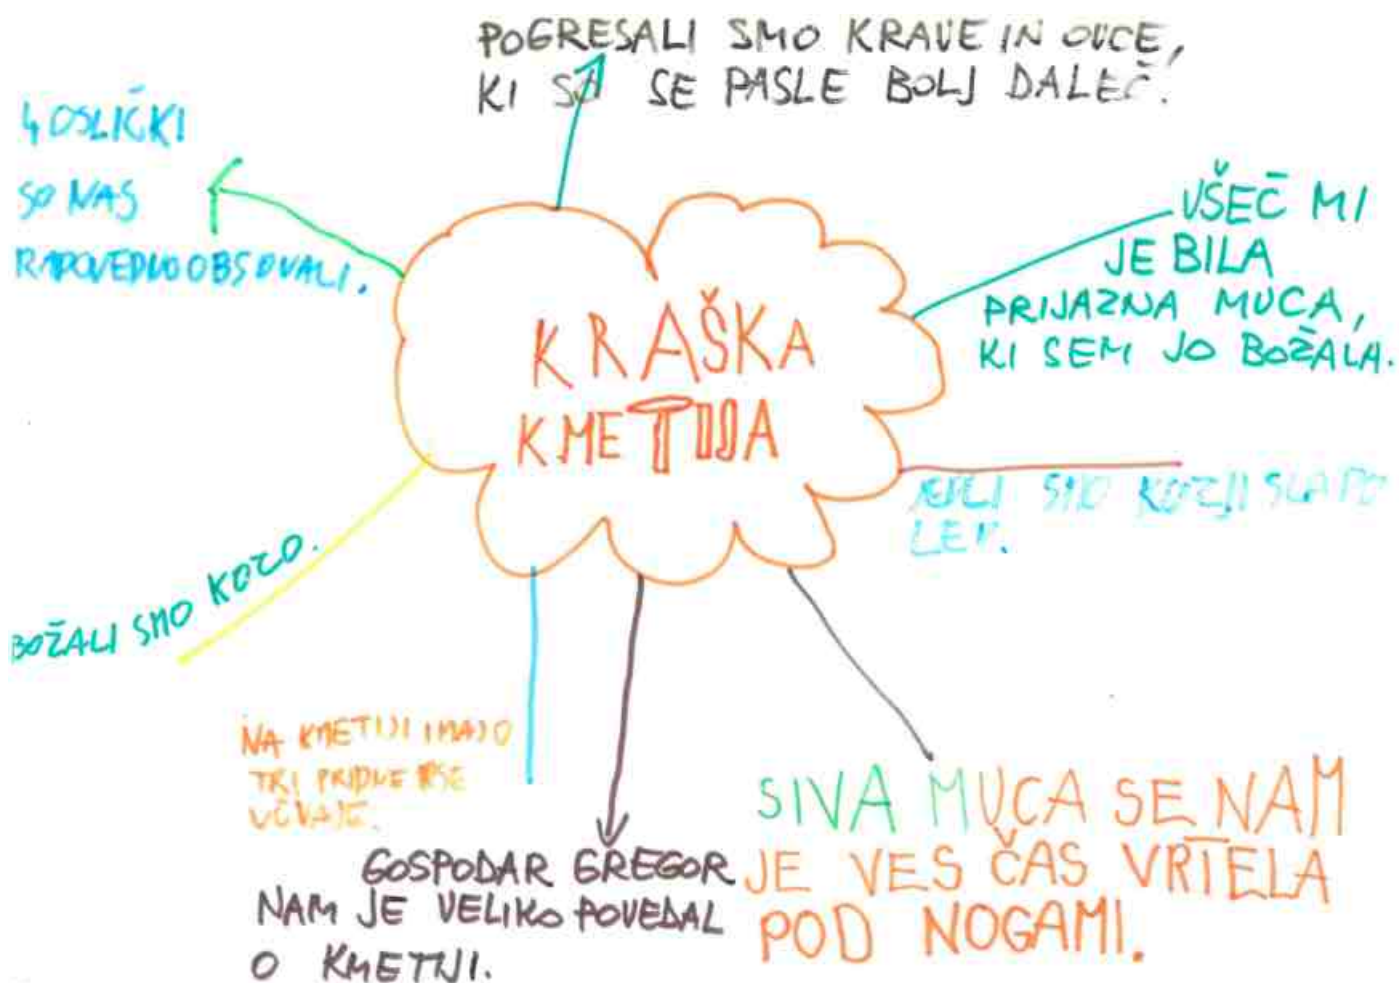 POGRESALI SMO KRAVE IN OVCE,
KI SO SE PASLE BOLJ DALEČ.
4 OSLIČKI
SO NAS
RADOVEDNO OBSOVALI.
VŠEČ MI
JE BILA
PRIJAZNA MUCA,
KI SEM JO BOŽALA.
KRAŠKA
KMETIJA
JEDLI SMO KOZJI SLADO
LED.
BOŽALI SMO KOZO.
NA KMETIJI IMAJO
TRI PRIDNE PSE
GOSPODAR GREGOR
NAM JE VELIKO POVEDAL
O KMETIJI.
SIVA MUCA SE NAM
JE VES ČAS VRTELA
POD NOGAMI.